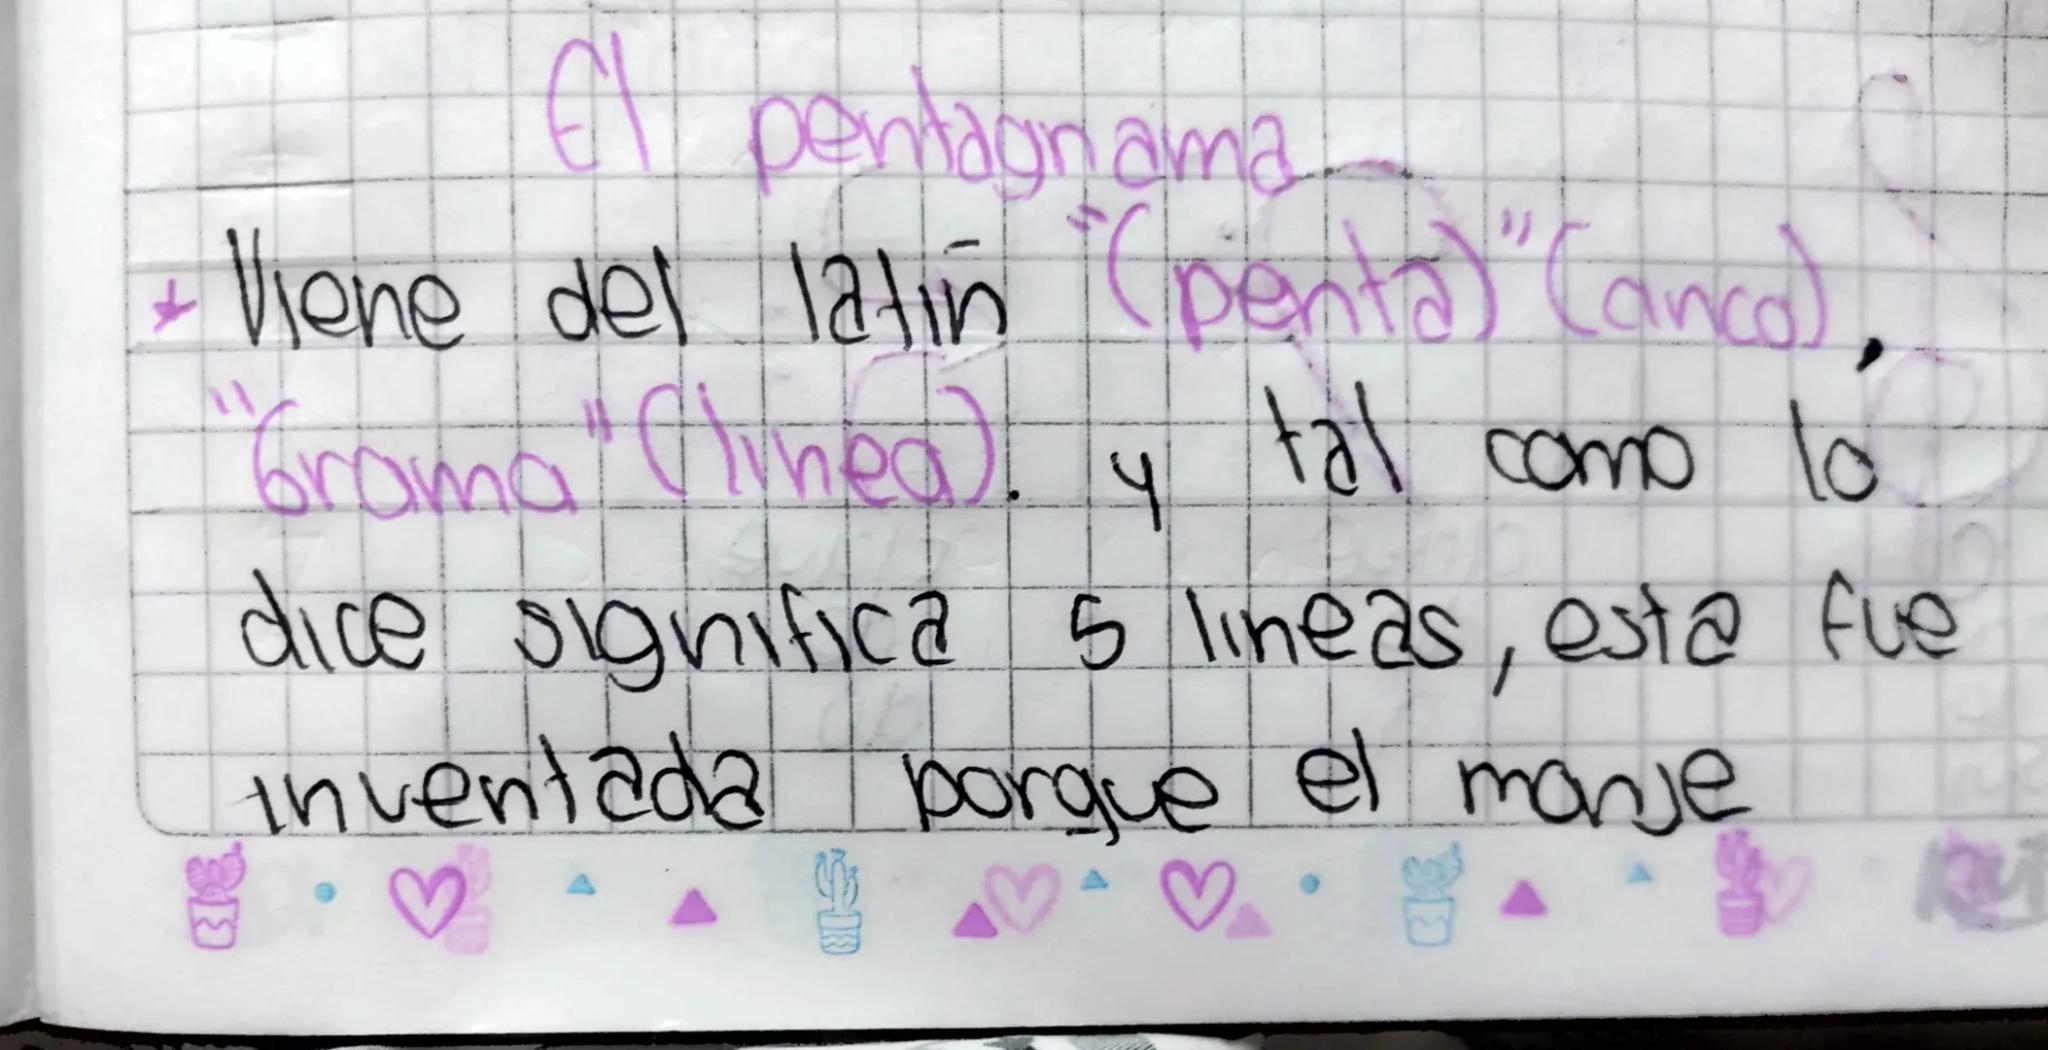 El pentagrama
* Viene del latín "(penta)" (cinco),
"Grama" (linea). y tal como lo
dice significa 5 lineas, esta fue
inventada porque el monje